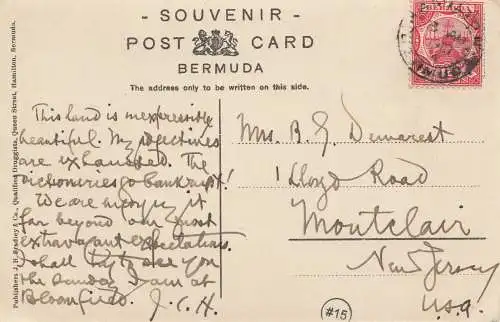 - SOUVENIR -
POST CARD
BERMUDA
The address only to be written on this side.
BERMUDA
This land is inexpressibly
beautiful. My adjectives
are exhausted. The
dictionaries go bankrupt!
We are enjoying it
far beyond our most
extravagant expectations.
I shall try to see you
the Sunday I am at
Bloomfield. J.C.H.
Mrs. B. G. Demarest
1 Lloyd Road
Montclair
New Jersey
U.S.A.
Publishers J. H. Bradley & Co., Qualified Druggists, Queen Street, Hamilton, Bermuda.
#15